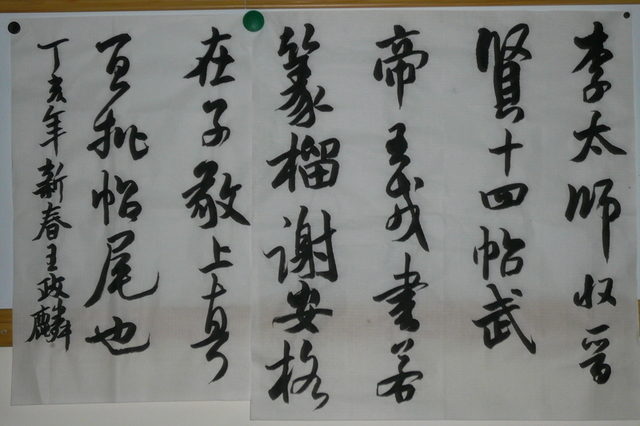 李太师收晋
賢十四帖武
帝王戎書若
篆榴谢安格
在子敬上真
宜批帖尾也
丁亥年新春王政麟